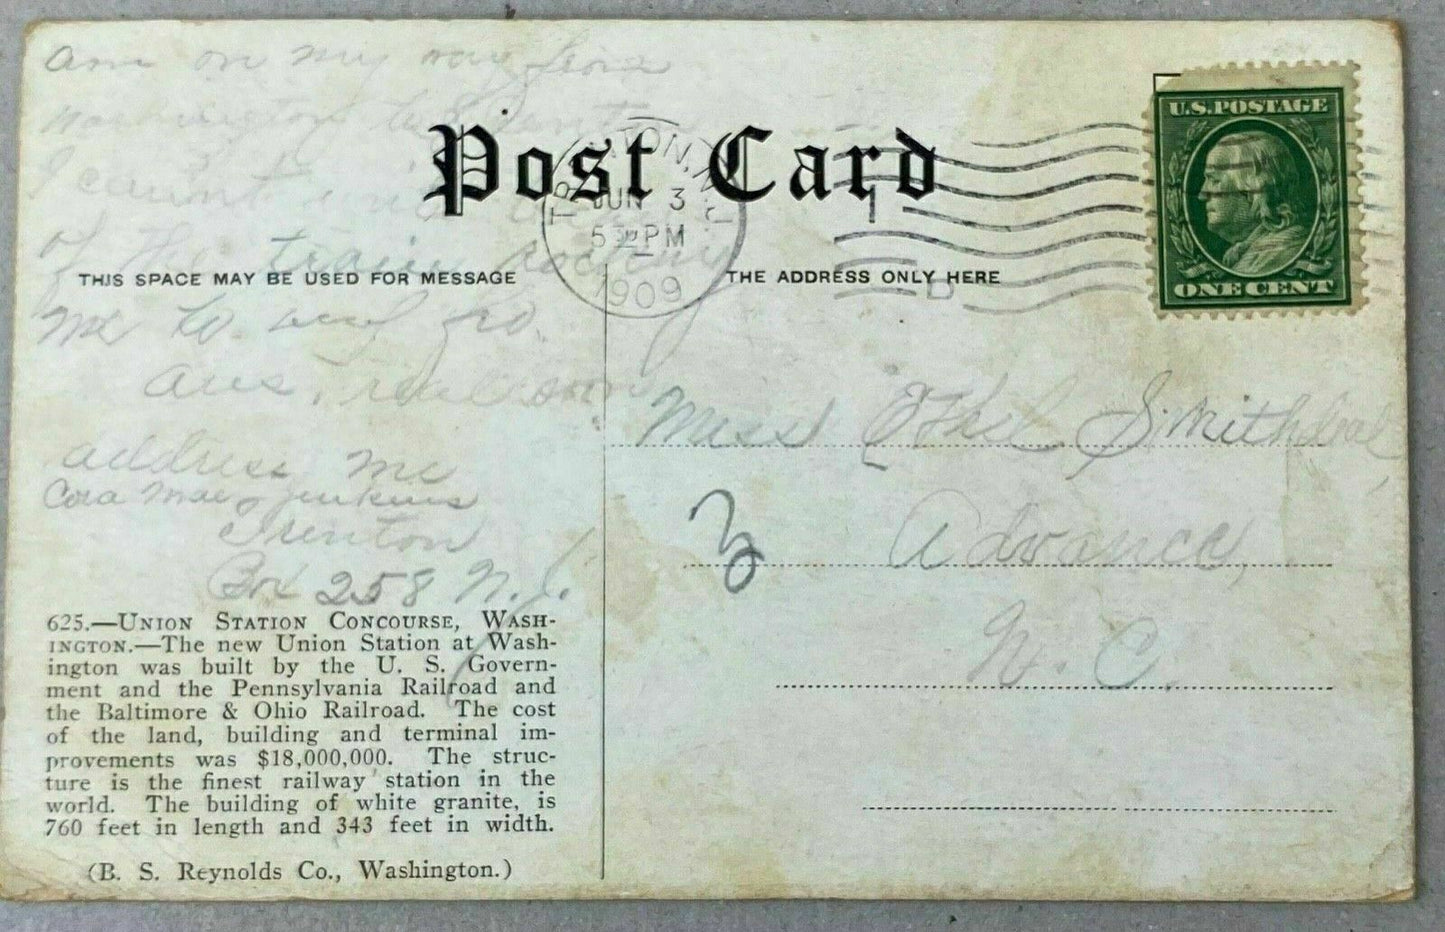 am on my way from
Washington to Trenton
I can't write
of the train
me to
Ans. real soon
address me
Cora Mae Jenkins
Trenton
Box 258 N.J.
Post Card
THIS SPACE MAY BE USED FOR MESSAGE
THE ADDRESS ONLY HERE
TRENTON, N.J.
JUN 3
5 PM
1909
U.S. POSTAGE
ONE CENT
Miss Ethel Smithdeal,
Advance,
N. C.
625.—UNION STATION CONCOURSE, WASH-
INGTON.—The new Union Station at Wash-
ington was built by the U. S. Govern-
ment and the Pennsylvania Railroad and
the Baltimore & Ohio Railroad. The cost
of the land, building and terminal im-
provements was $18,000,000. The struc-
ture is the finest railway station in the
world. The building of white granite, is
760 feet in length and 343 feet in width.
(B. S. Reynolds Co., Washington.)